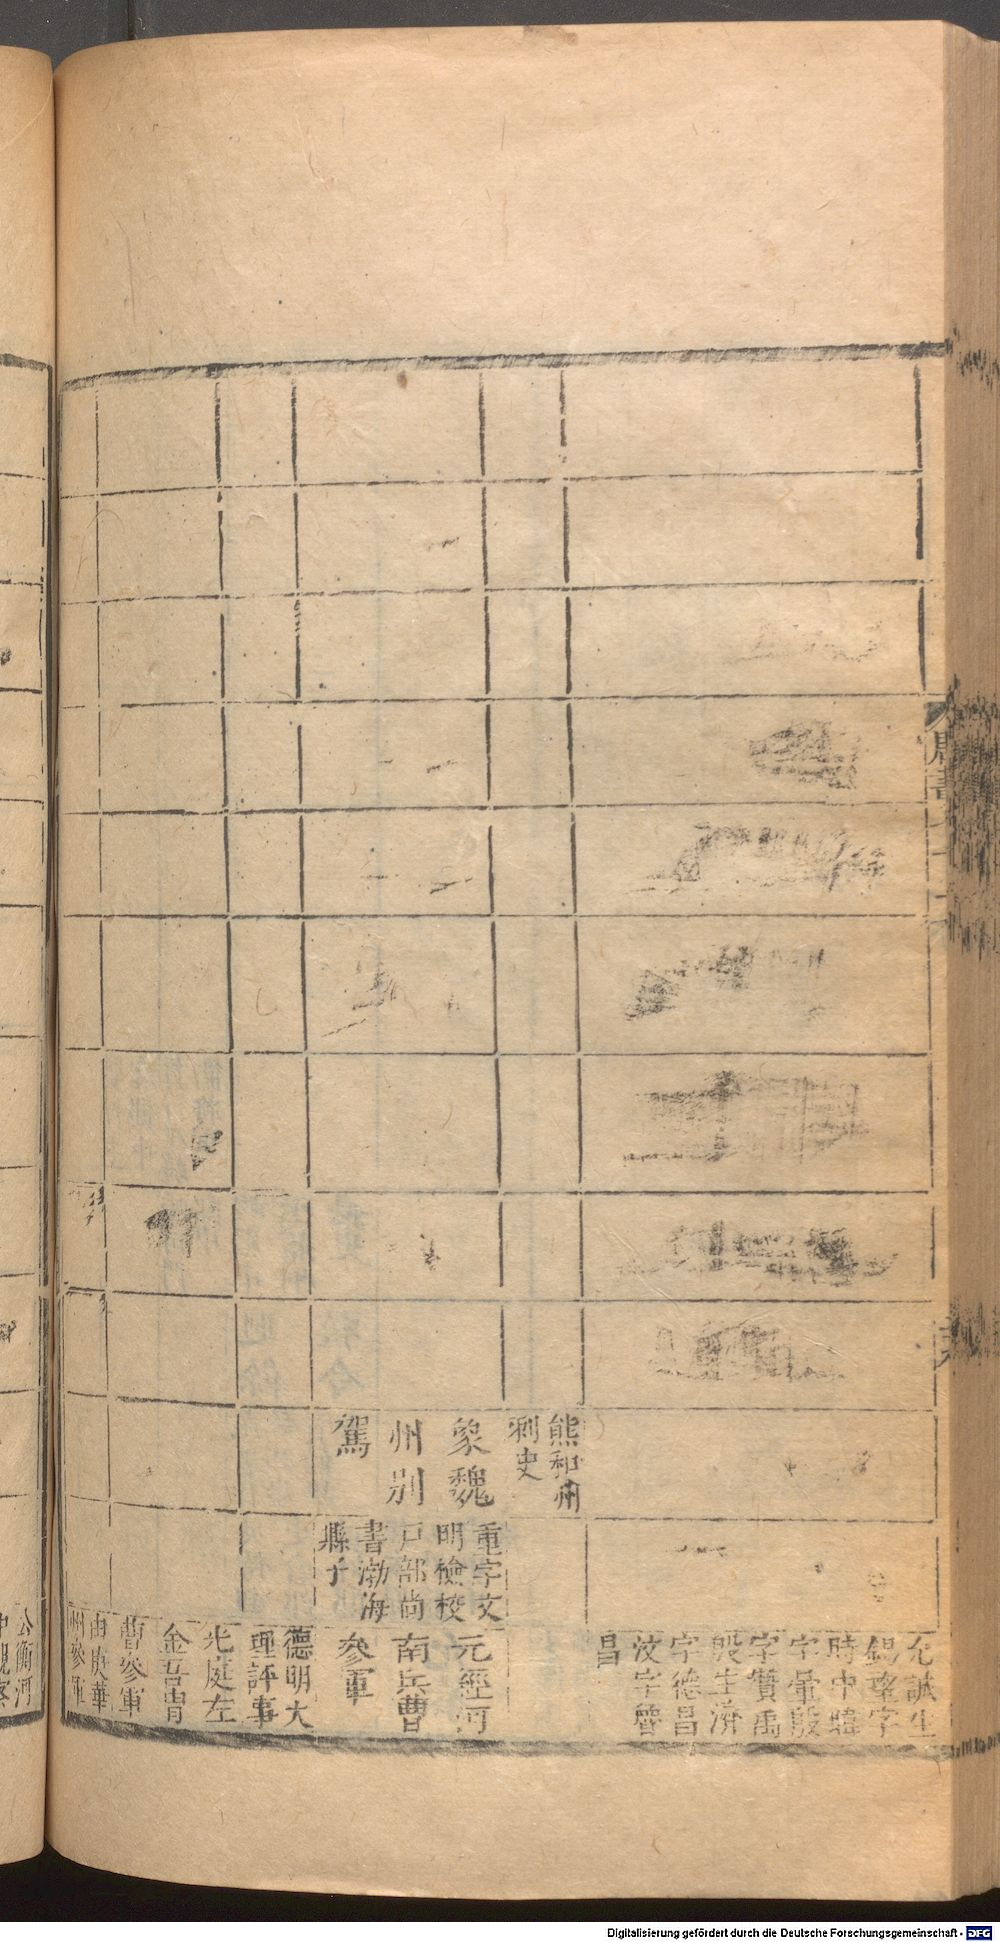 允誠生
錫望字
時中暐
字彙殷
字贊禹
殷生濟
字德昌
汶字魯
昌
熊和州
刺史
象魏
州別
駕
重字文
明檢校
戸部尚
書渤海
縣子
元經河
南兵曹
參軍
德明大
理評事
光庭左
金吾胄
曹參軍
由庚華
州參軍
Digitalisierung gefördert durch die Deutsche Forschungsgemeinschaft - DFG